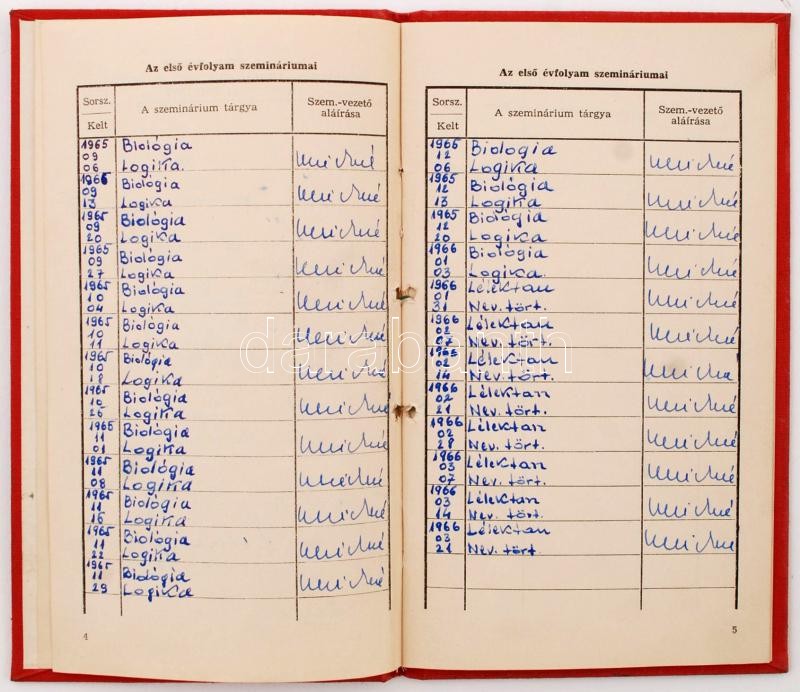 Az első évfolyam szemináriumai
Sorsz.
Kelt
A szeminárium tárgya
Szem.-vezető
aláírása
1965 Biológia
09
06 Logika.
1965 Biológia
09
13 Logika
1965 Biológia
09
20 Logika
1965 Biológia
09
27 Logika
1965 Biológia
10
04 Logika
1965 Biológia
10
11 Logika
1965 Biológia
10
18 Logika
1965 Biológia
10
25 Logika
1965 Biológia
11
01 Logika
1965 Biológia
11
08 Logika
1965 Biológia
11
15 Logika
1965 Biológia
11
22 Logika
1965 Biológia
11
29 Logika
4
Az első évfolyam szemináriumai
Sorsz.
Kelt
A szeminárium tárgya
Szem.-vezető
aláírása
1965 Biológia
12
06 Logika
1965 Biológia
12
13 Logika
1965 Biológia
12
20 Logika
1966 Biológia
01
03 Logika.
1966 Lélektan
01
31 Nev. tört.
1966 Lélektan
02
07 Nev. tört.
Lélektan
02
14 Nev. tört.
1966 Lélektan
02
21 Nev. tört.
1966 Lélektan
02
28 Nev. tört.
1966 Lélektan
03
07 Nev. tört.
1966 Lélektan
03
14 Nev. tört.
1966 Lélektan
03
21 Nev. tört.
5